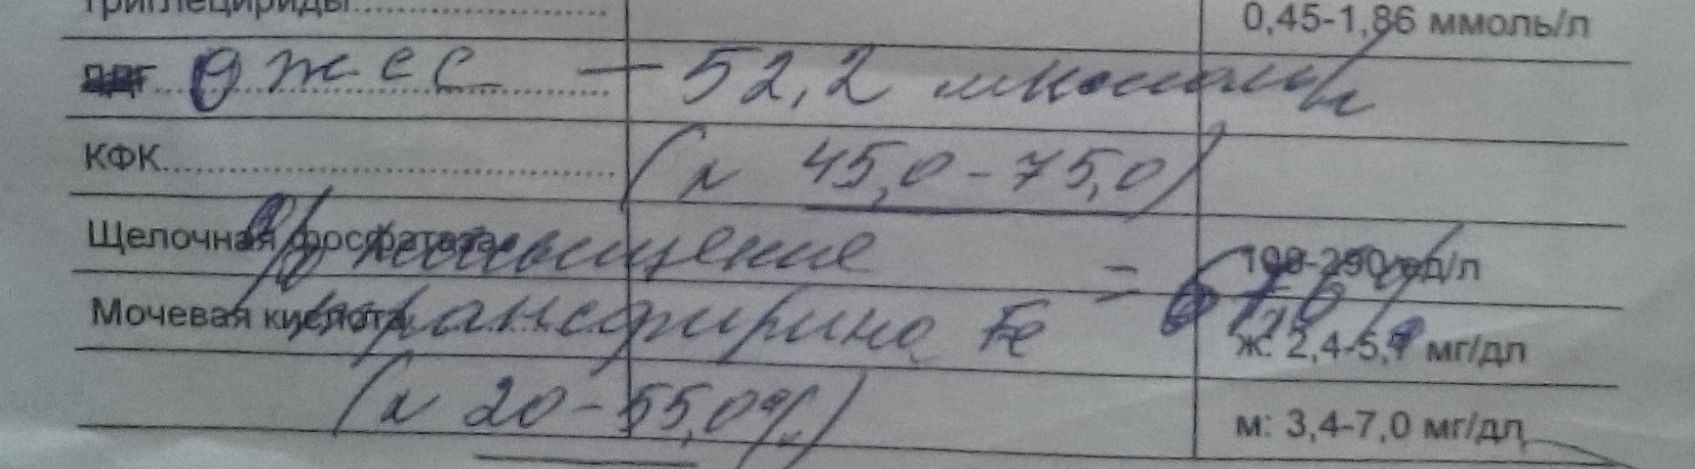 Триглецириды 0,45-1,86 ммоль/л
ОЖСС — 52,2 мкмоль/л
КФК (N 45,0-75,0)
Щелочная фосфатаза 100-290 ед/л
насыщение
Мочевая кислота ж: 2,4-5,7 мг/дл
трансферрина Fe =
(N 20-55,0%) м: 3,4-7,0 мг/дл